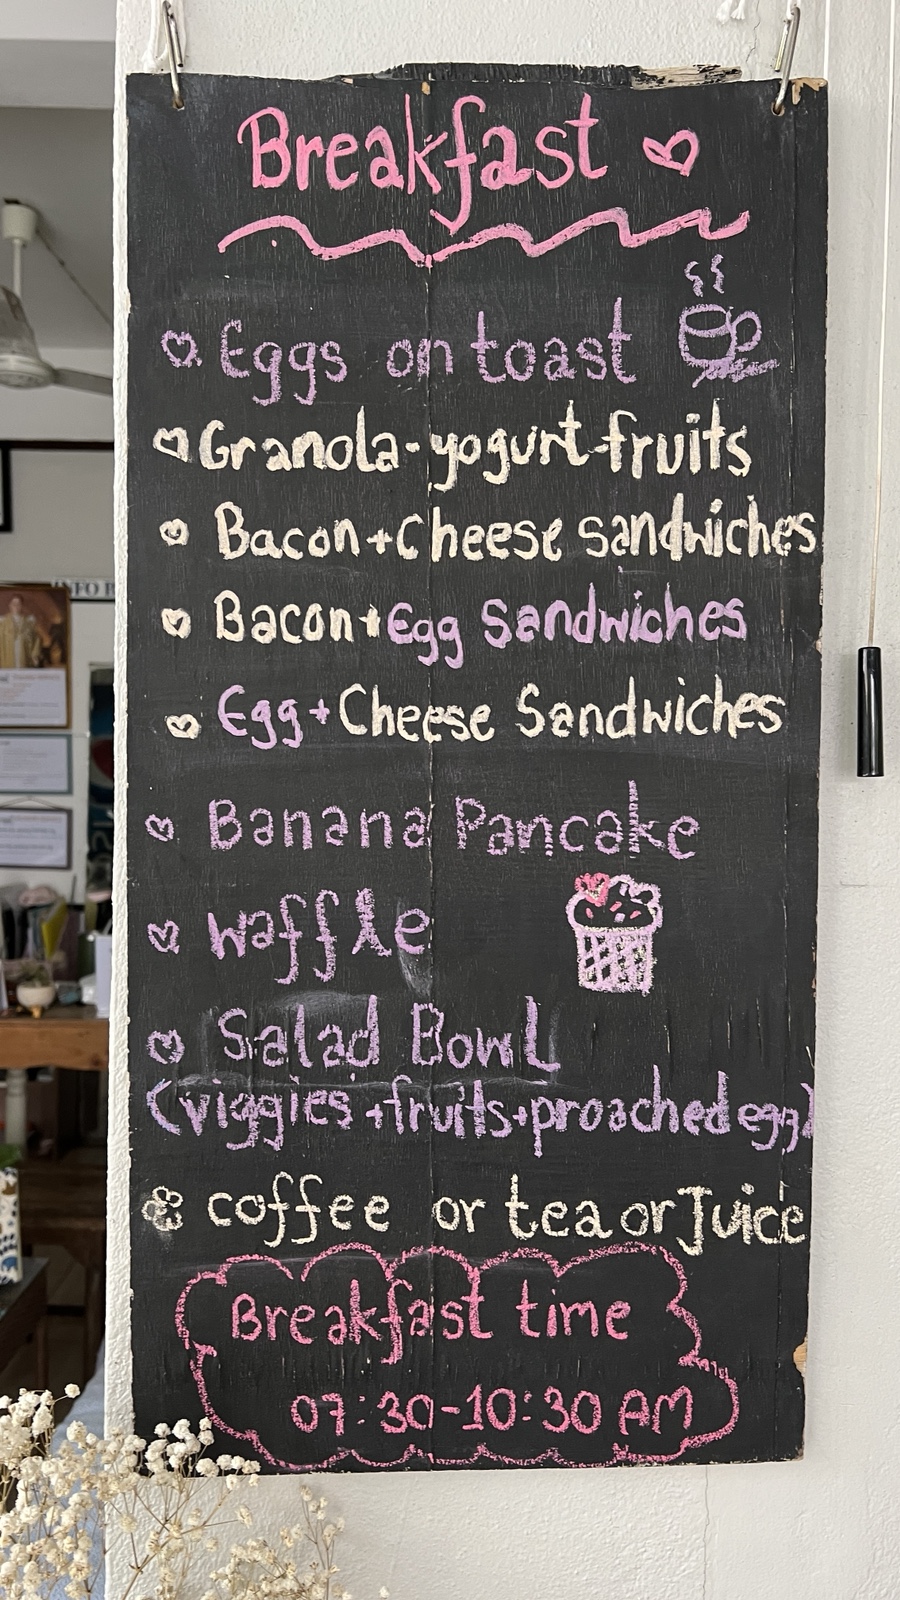 Breakfast
Eggs on toast
Granola-yogurt-fruits
Bacon+Cheese sandwiches
Bacon+Egg Sandwiches
Egg+Cheese Sandwiches
Banana Pancake
waffle
Salad Bowl
(viggies+fruits+proached egg)
coffee or tea or Juice
Breakfast time
07:30-10:30 AM
INFO